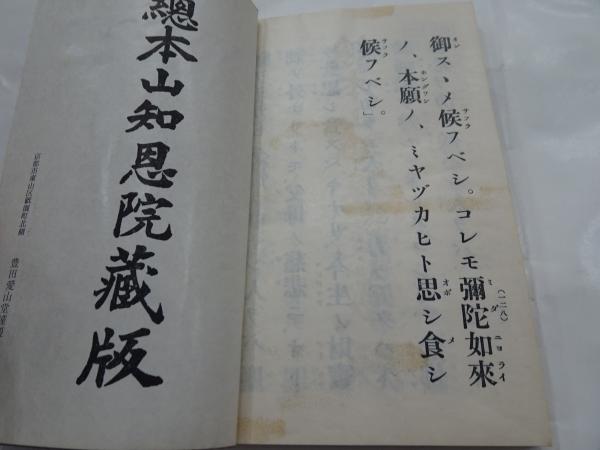 御スヽメ候フベシ。コレモ彌陀如來
ノ、本願ノ、ミヤヅカヒト思シ食シ
候フベシ」
(一二八)
總本山知恩院藏版
京都市東山区祇園町北側
豊田愛山堂